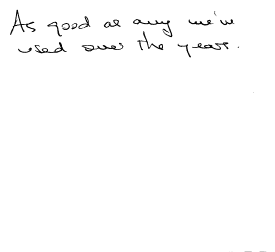 As good as any we've
used over the years.